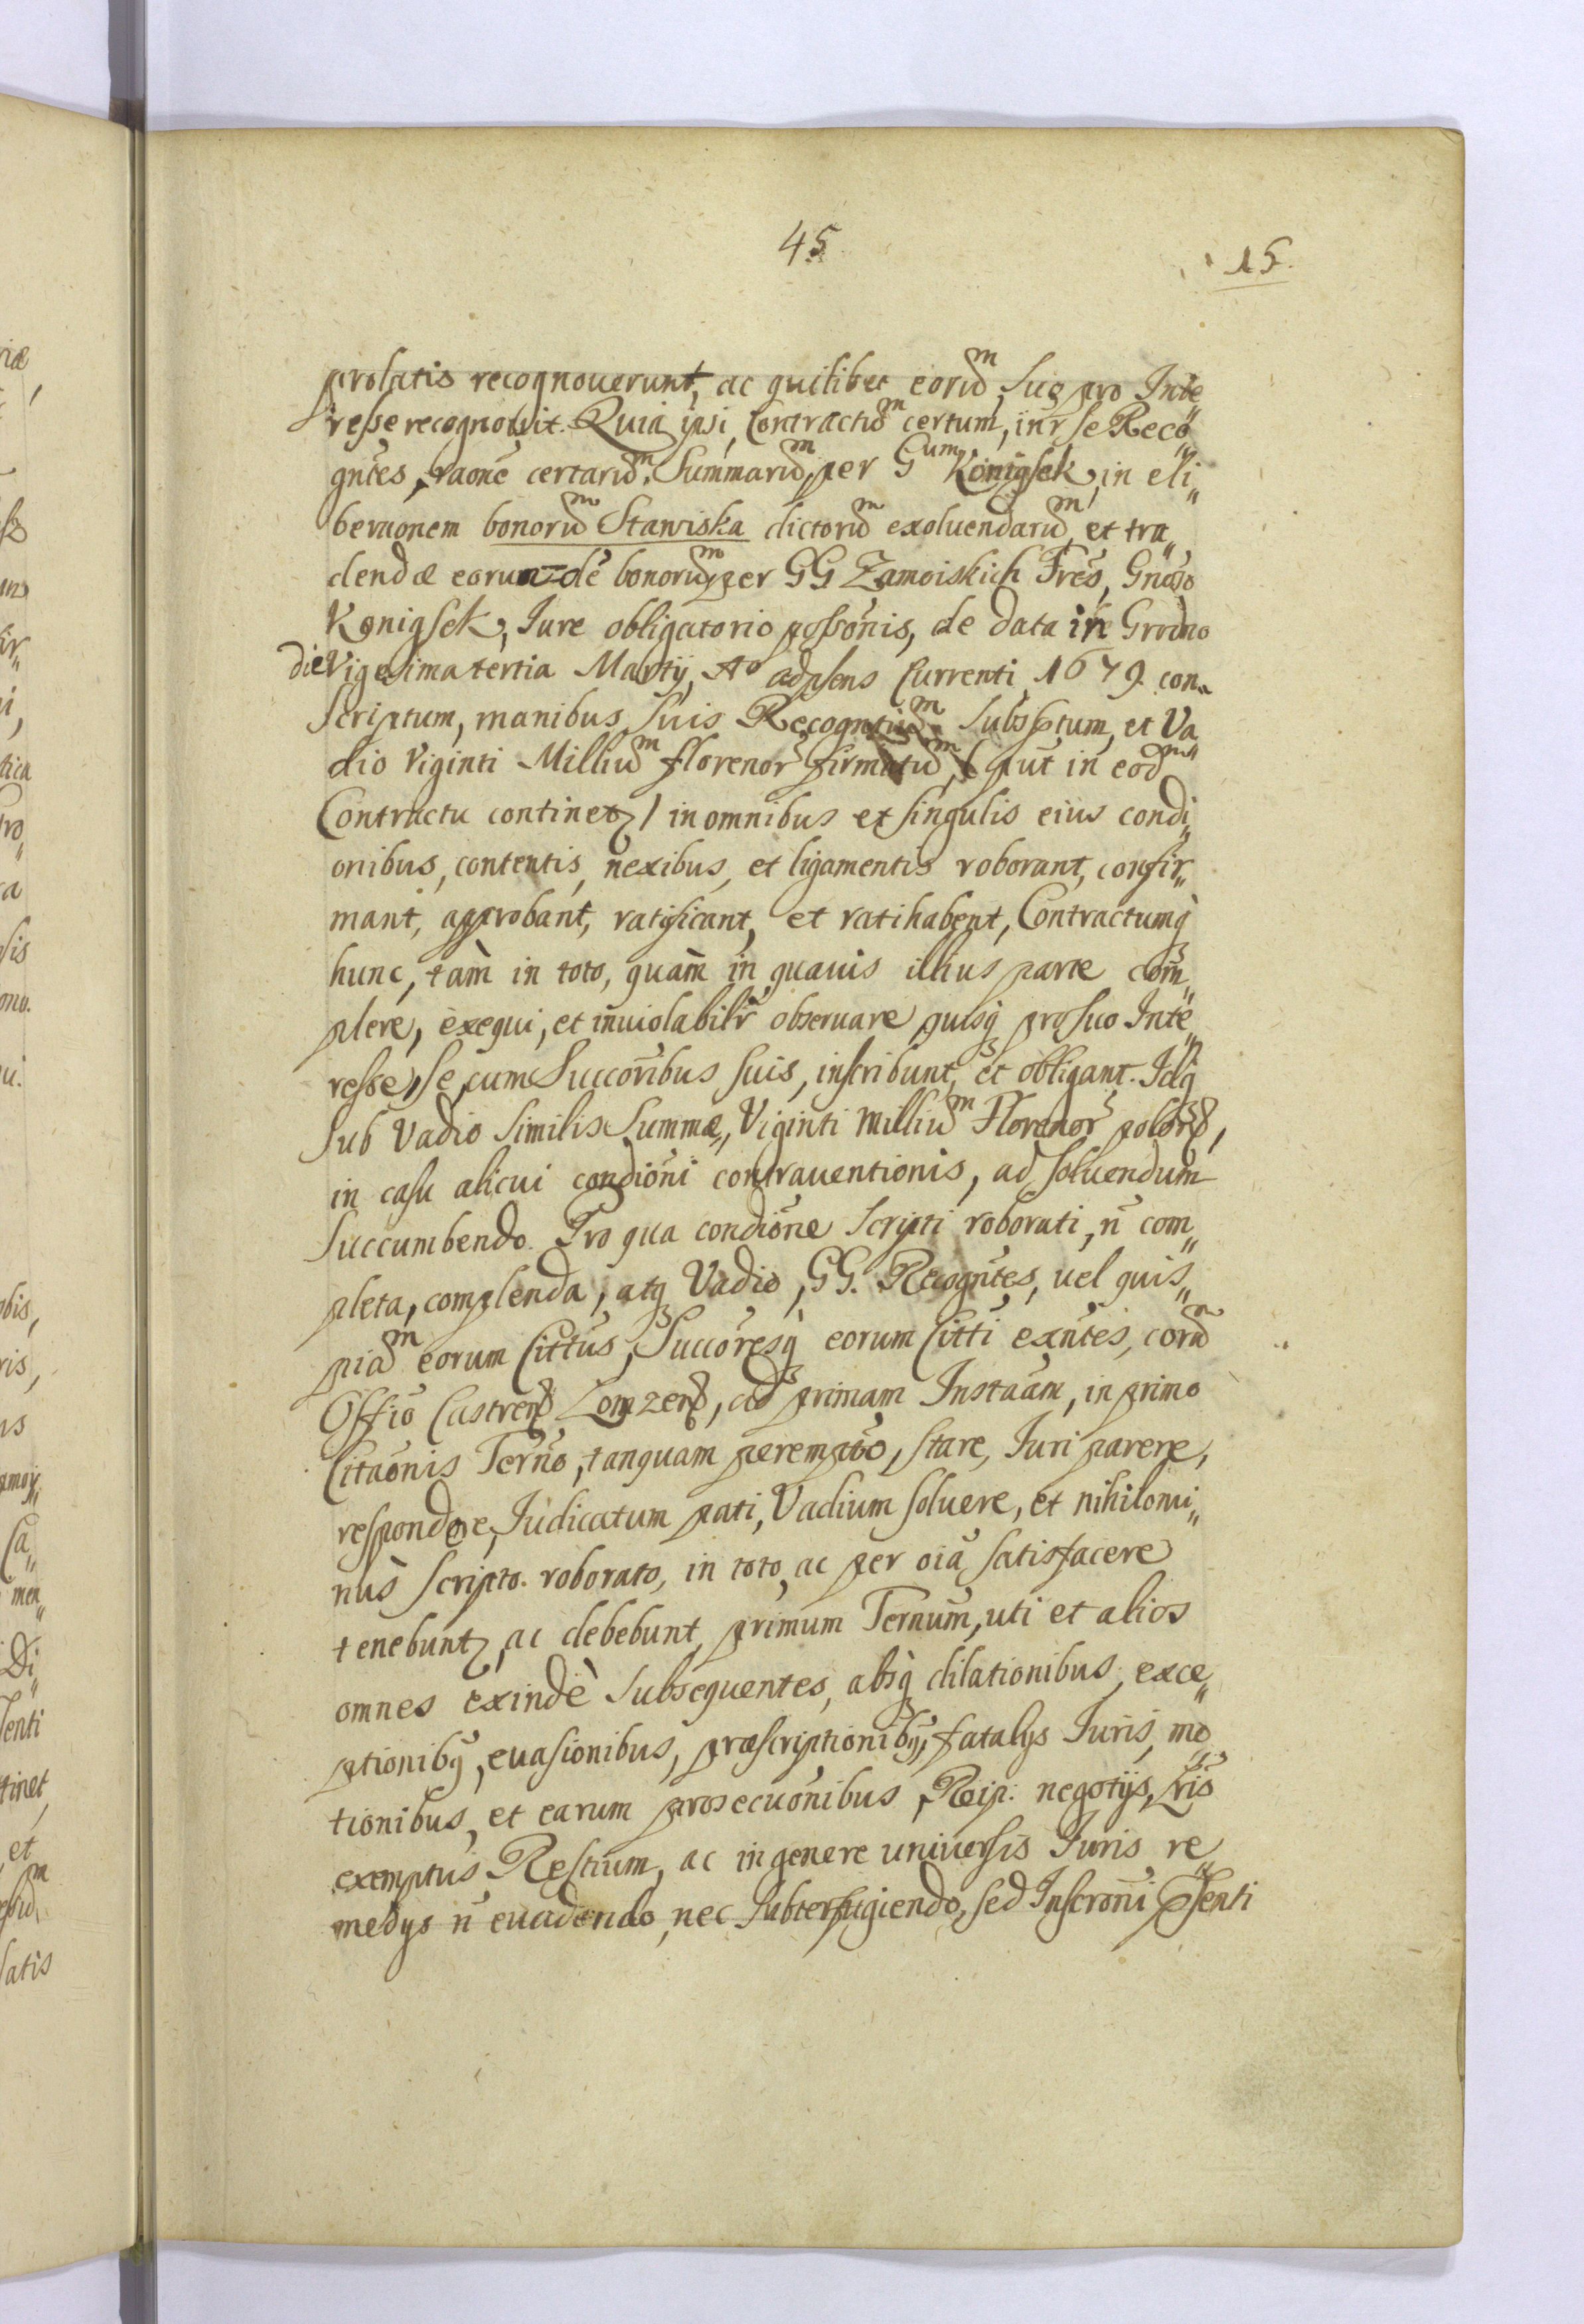 45
15.
prolatis recognouerunt, ac quilibet eorũm suo pro Inte„
resse recognovit. Quia ipsi, Contractũm certum, inr se Reco„
gntes, raone certarũm Summarũm, per Gum Konigsek, in eli„
beraonem bonorũm Stawiska dictorũm exoluendarũm, et tra„
dendæ eorundẽ bonorũm, per GG Zamoiskich Fres, Gnoso
Konigsek, Iure obligatorio possonis, de data in Grodno
die Vigesima tertia Martij, Ao adpsens Currenti 1679. con„
scriptum, manibus suis Recogntiũm subsptum, et Va„
dio Viginti Milliũm florenor firmatũm, ( put in eodm
Contractu continetz / in omnibus et singulis eius condi„
onibus, contentis, nexibus, et ligamentis roborant, confir„
mant, approbant, ratificant, et ratihabent, Contractumq
hunc, tàm in toto, quàm in quauis illius parte com„
plere, exequi, et inuiolabilr obseruare quisq pro suo Inte„
resse, se cum Succoribus suis, inscribunt, et obligant. Idq
sub Vadio similis Summæ, Viginti Milliũm Florenor polor,
in casu alicui condioni contrauentionis, ad soluendum
succumbendo. Pro qua condione scripti roborati, n com„
pleta, complenda, atq Vadio, GG. Recogntes, uel quis„
piãm eorum Cittus, Succoresq eorum Citti exntes, corũm
Offio Castren Lomzen, ad primam Instaam, in primo
Citaonis Terno, tanquam perempto, stare, Iuri parere,
respondere, Iudicatum pati, Vadium soluere, et nihilomi„
nùs scripto roborato, in toto, ac per oia satisfacere
tenebuntz, ac debebunt, primum Ternum, uti et alios
omnes exindè subsequentes, absq dilationibus, exce„
ptionibq, euasionibus, præscriptionibq, fatalijs Iuris, mo„
tionibus, et earum prosecuonibus, Reip: negotijs, Lris
exemptus Restium, ac in genere uniuersis Iuris re„
medijs n euadendo, nec subterfugiendo, sed Inscroni psenti